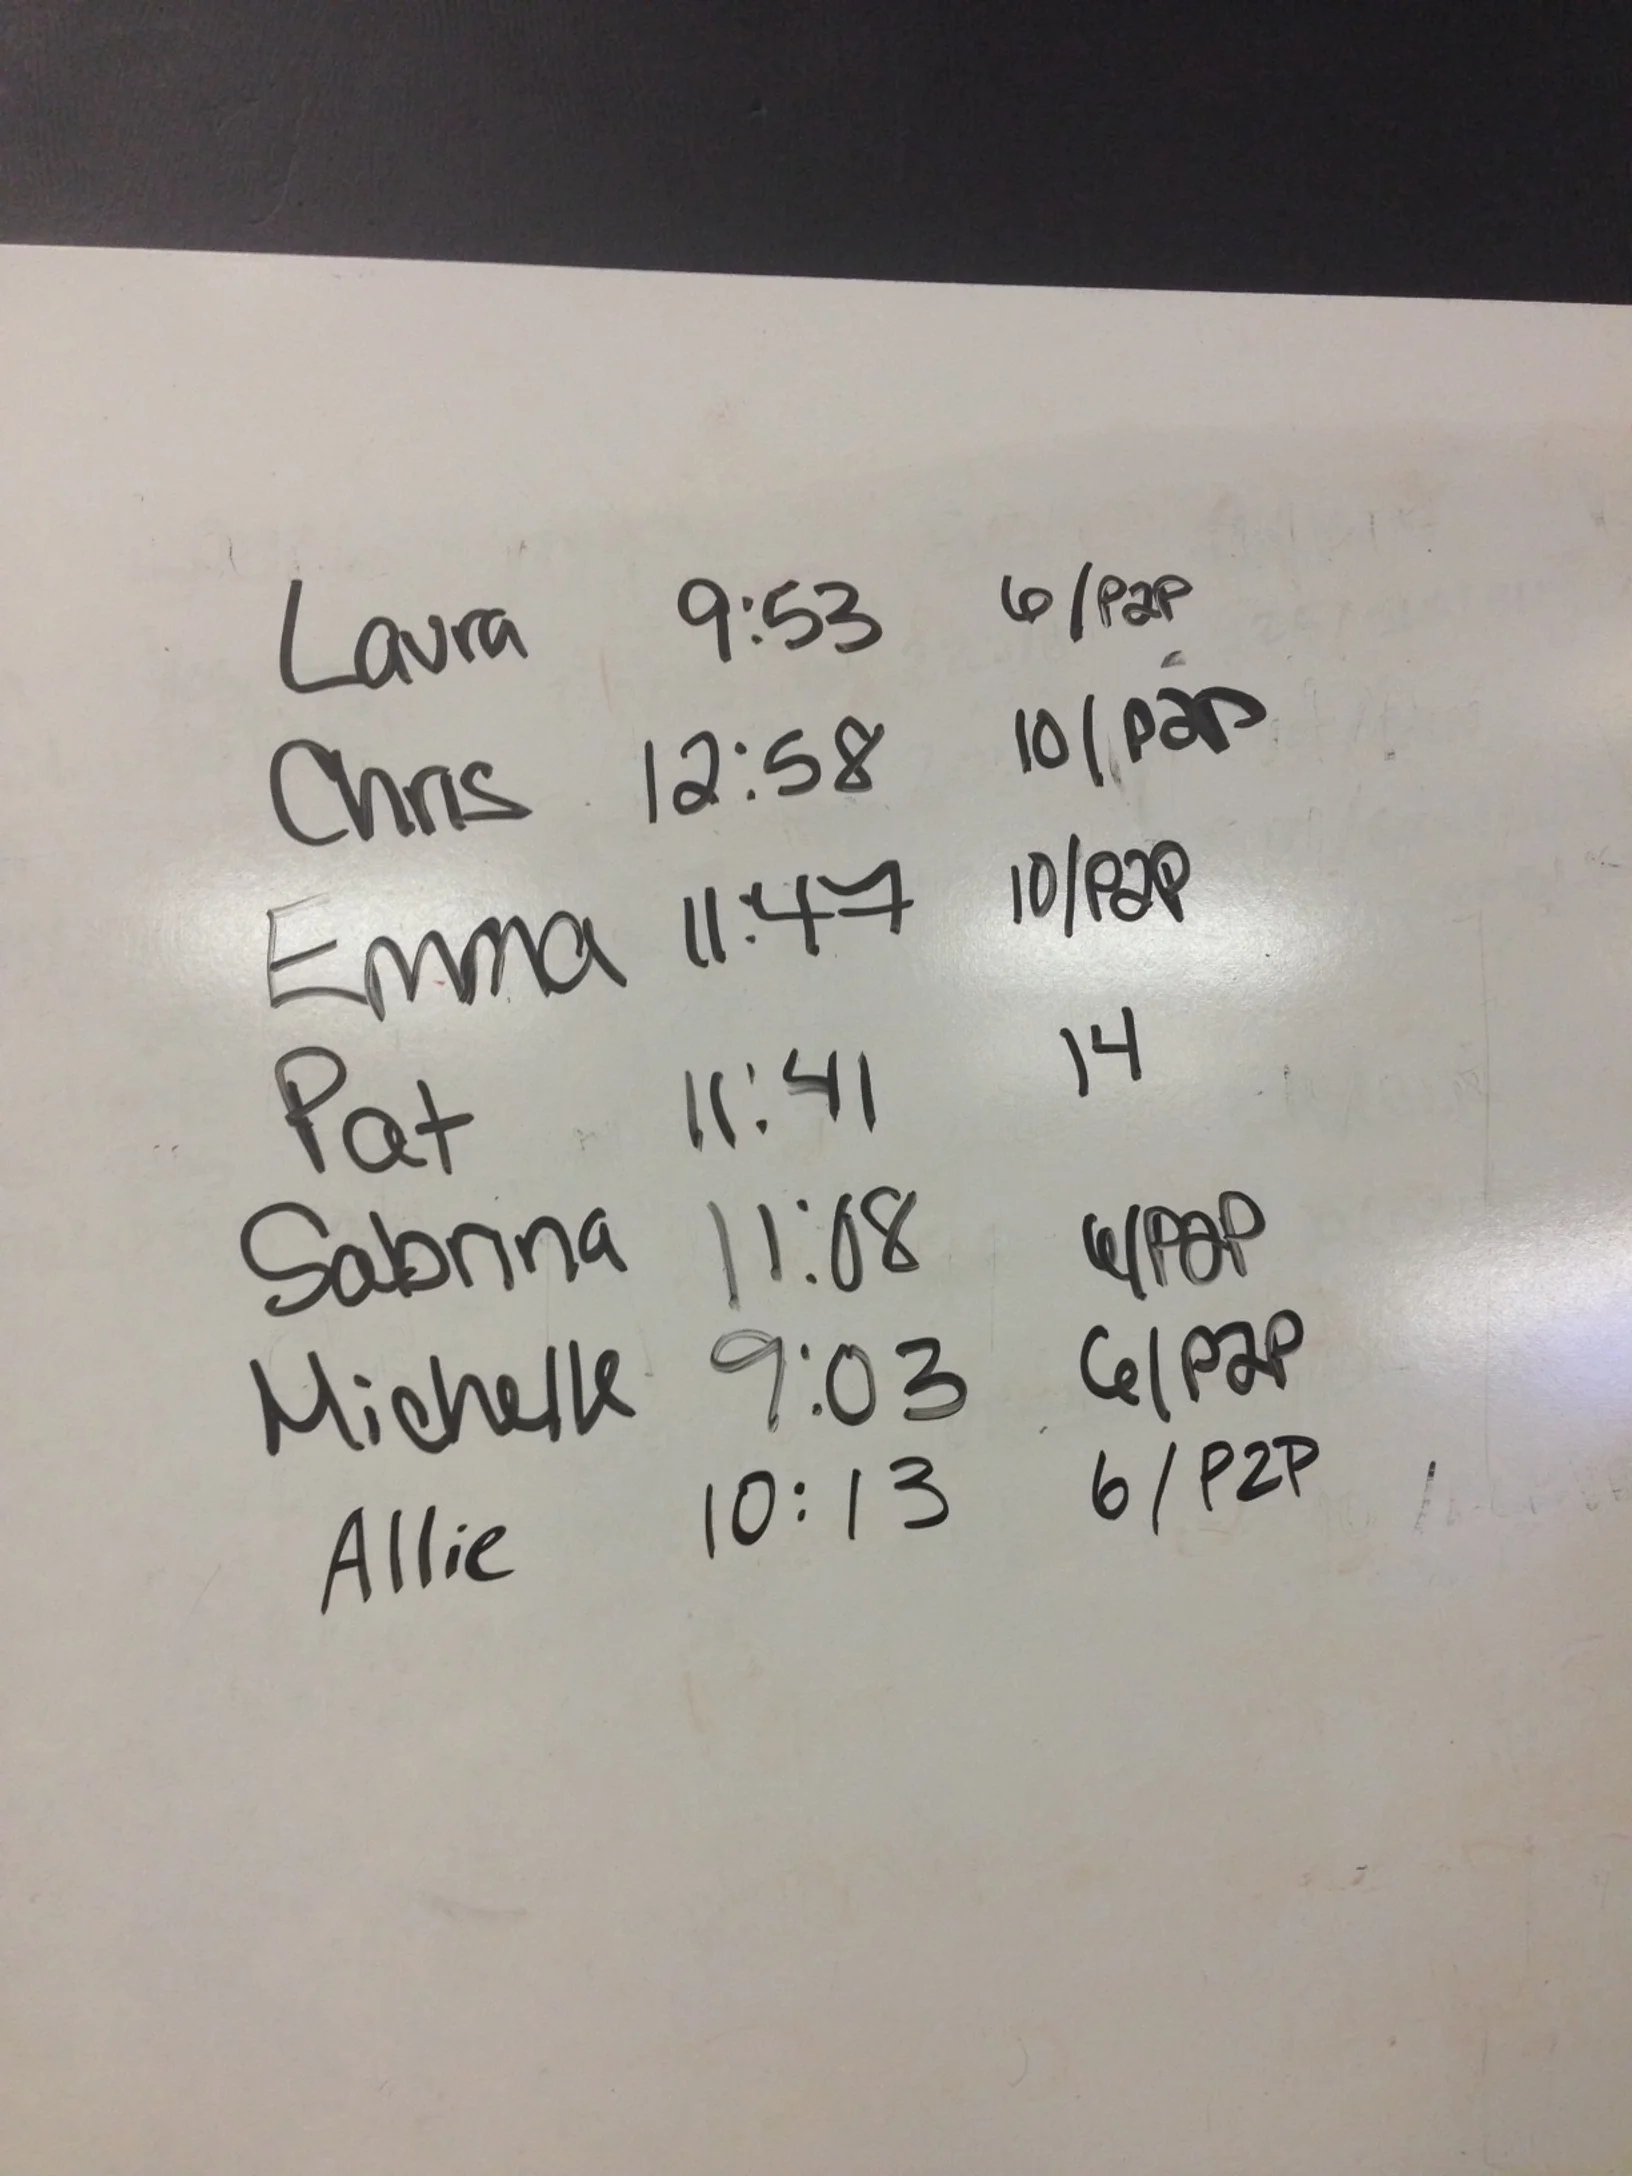 Laura 9:53 6/P2P
Chris 12:58 10/P2P
Emma 11:47 10/P2P
Pat 11:41 14
Sabrina 11:08 6/P2P
Michelle 9:03 6/P2P
Allie 10:13 6/P2P